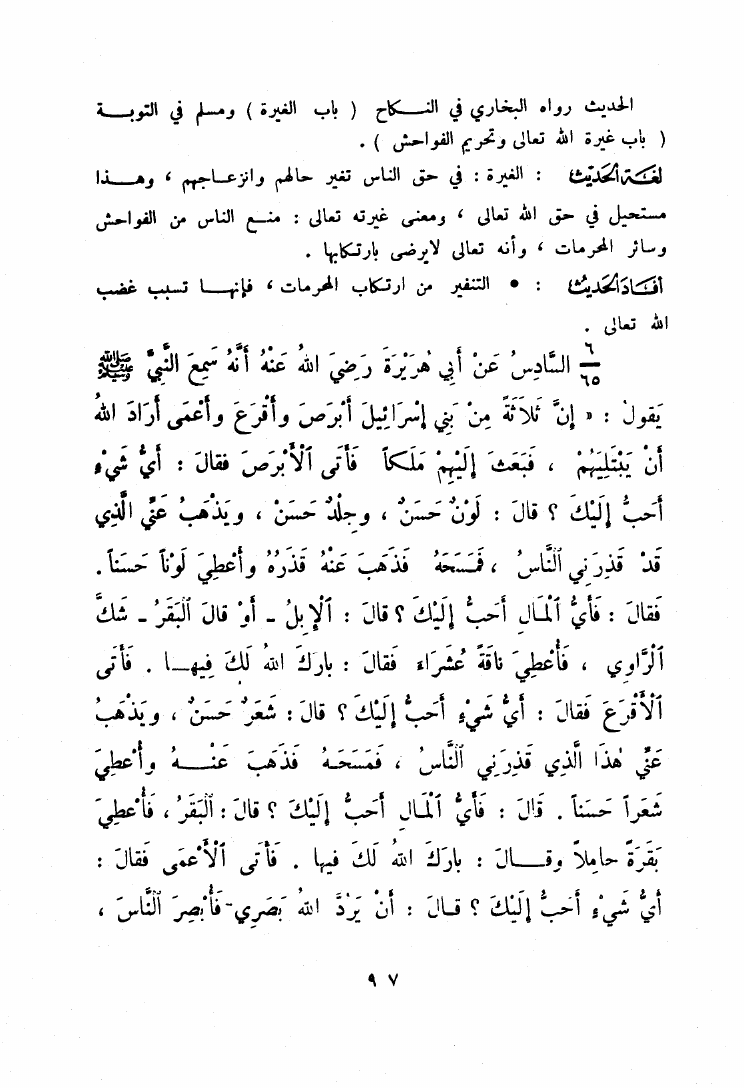 الحديث رواه البخاري في النكاح ( باب الغيرة ) ومسلم في التوبة
( باب غيرة الله تعالى وتحريم الفواحش ) .
لغة الحديث : الغيرة : في حق الناس تغير حالهم وانزعاجهم ، وهذا
مستحيل في حق الله تعالى ، ومعنى غيرته تعالى : منع الناس من الفواحش
وسائر المحرمات ، وأنه تعالى لايرضى بارتكابها .
أفاد الحديث : • التنفير من ارتكاب المحرمات ، فإنها تسبب غضب
الله تعالى .
٦/٦٥ السَّادِسُ عَنْ أَبِي هُرَيْرَةَ رَضِيَ اللهُ عَنْهُ أَنَّهُ سَمِعَ النَّبِيَّ ﷺ
يَقولُ : « إِنَّ ثَلَاثَةً مِنْ بَنِي إِسْرَائِيلَ أَبْرَصَ وأَقْرَعَ وأَعْمَى أَرَادَ اللهُ
أَنْ يَبْتَلِيَهُمْ ، فَبَعَثَ إِلَيْهِمْ مَلَكاً فَأَتَى ٱلْأَبْرَصَ فقالَ : أَيُّ شَيْءٍ
أَحَبُّ إِلَيْكَ ؟ قالَ : لَوْنٌ حَسَنٌ ، وجِلْدٌ حَسَنٌ ، ويَذْهَبُ عَنِّي الَّذِي
قَدْ قَذِرَنِي ٱلنَّاسُ ، فَمَسَحَهُ فَذَهَبَ عَنْهُ قَذَرُهُ وأُعْطِيَ لَوْناً حَسَناً .
فَقالَ : فَأَيُّ ٱلْمَالِ أَحَبُّ إِلَيْكَ ؟ قالَ : ٱلْإِبِلُ - أَوْ قالَ ٱلْبَقَرُ - شَكَّ
ٱلرَّاوِي ، فَأُعْطِيَ نَاقَةً عُشَرَاءَ فَقالَ : بارَكَ اللهُ لَكَ فِيها . فَأَتَى
ٱلْأَقْرَعَ فَقالَ : أَيُّ شَيْءٍ أَحَبُّ إِلَيْكَ ؟ قالَ : شَعَرٌ حَسَنٌ ، ويَذْهَبُ
عَنِّي هٰذَا الَّذِي قَذِرَنِي ٱلنَّاسُ ، فَمَسَحَهُ فَذَهَبَ عَنْهُ وأُعْطِيَ
شَعَراً حَسَناً . قَالَ : فَأَيُّ ٱلْمَالِ أَحَبُّ إِلَيْكَ ؟ قالَ : ٱلْبَقَرُ ، فَأُعْطِيَ
بَقَرَةً حامِلاً وقالَ : بارَكَ اللهُ لَكَ فيها . فَأَتَى ٱلْأَعْمَى فَقالَ :
أَيُّ شَيْءٍ أَحَبُّ إِلَيْكَ ؟ قالَ : أَنْ يَرُدَّ اللهُ بَصَرِي فَأُبْصِرَ ٱلنَّاسَ ،
٩٧